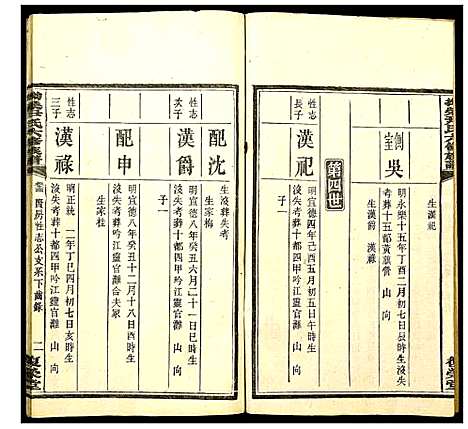 生漢祀
吳
明永樂十五年丁酉二月初七日辰時生沒失
考葬十五都黃
生漢爵 漢祿
第四世
性志
長子
漢祀
明宣德四年己酉五月初五日午時生
沒失考葬十都四甲吟江靈官灘 山 向
子一
生沒葬失考
配沈
生家梅
性志
次子
漢爵
明宣德八年癸丑六月二十一日巳時生
沒失考葬十都四甲吟江靈官灘 山 向
子一
配申
明宣德八年癸丑十二月十八日酉時生
沒失考葬十都四甲吟江靈官灘合夫冢
生家桂
性志
三子
漢祿
明正統二年丁巳四月初七日亥時生
沒失葬十都四甲吟江靈官灘 山 向
四房性志公支系下齒錄
二
復榮堂